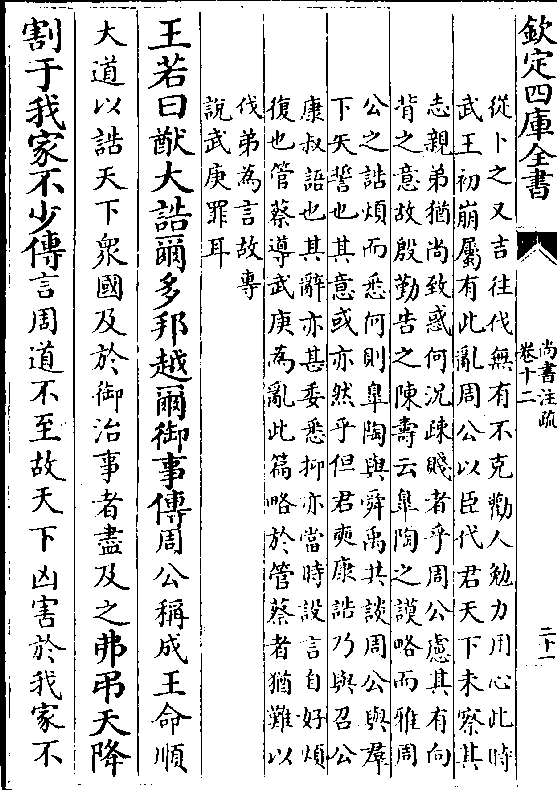 欽定四庫全書
尚書注疏
卷十二
二十一
從卜之又吉往伐無有不克勸人勉力用心此時
武王初崩屬有此亂周公以臣代君天下未察其
志親弟猶尚致惑何況疎賤者乎周公慮其有向
背之意故殷勤告之陳壽云臯陶之謨略而雅周
公之誥煩而悉何則臯陶與舜禹共談周公與羣
下矢誓也其意或亦然乎但君奭康誥乃與召公
康叔語也其辭亦甚委悉抑亦當時設言自好煩
復也管蔡導武庚為亂此篇略於管蔡者猶難以
伐弟為言故專
說武庚罪耳
王若曰猷大誥爾多邦越爾御事傳周公稱成王命順
大道以誥天下衆國及於御治事者盡及之弗弔天降
割于我家不少傳言周道不至故天下凶害於我家不